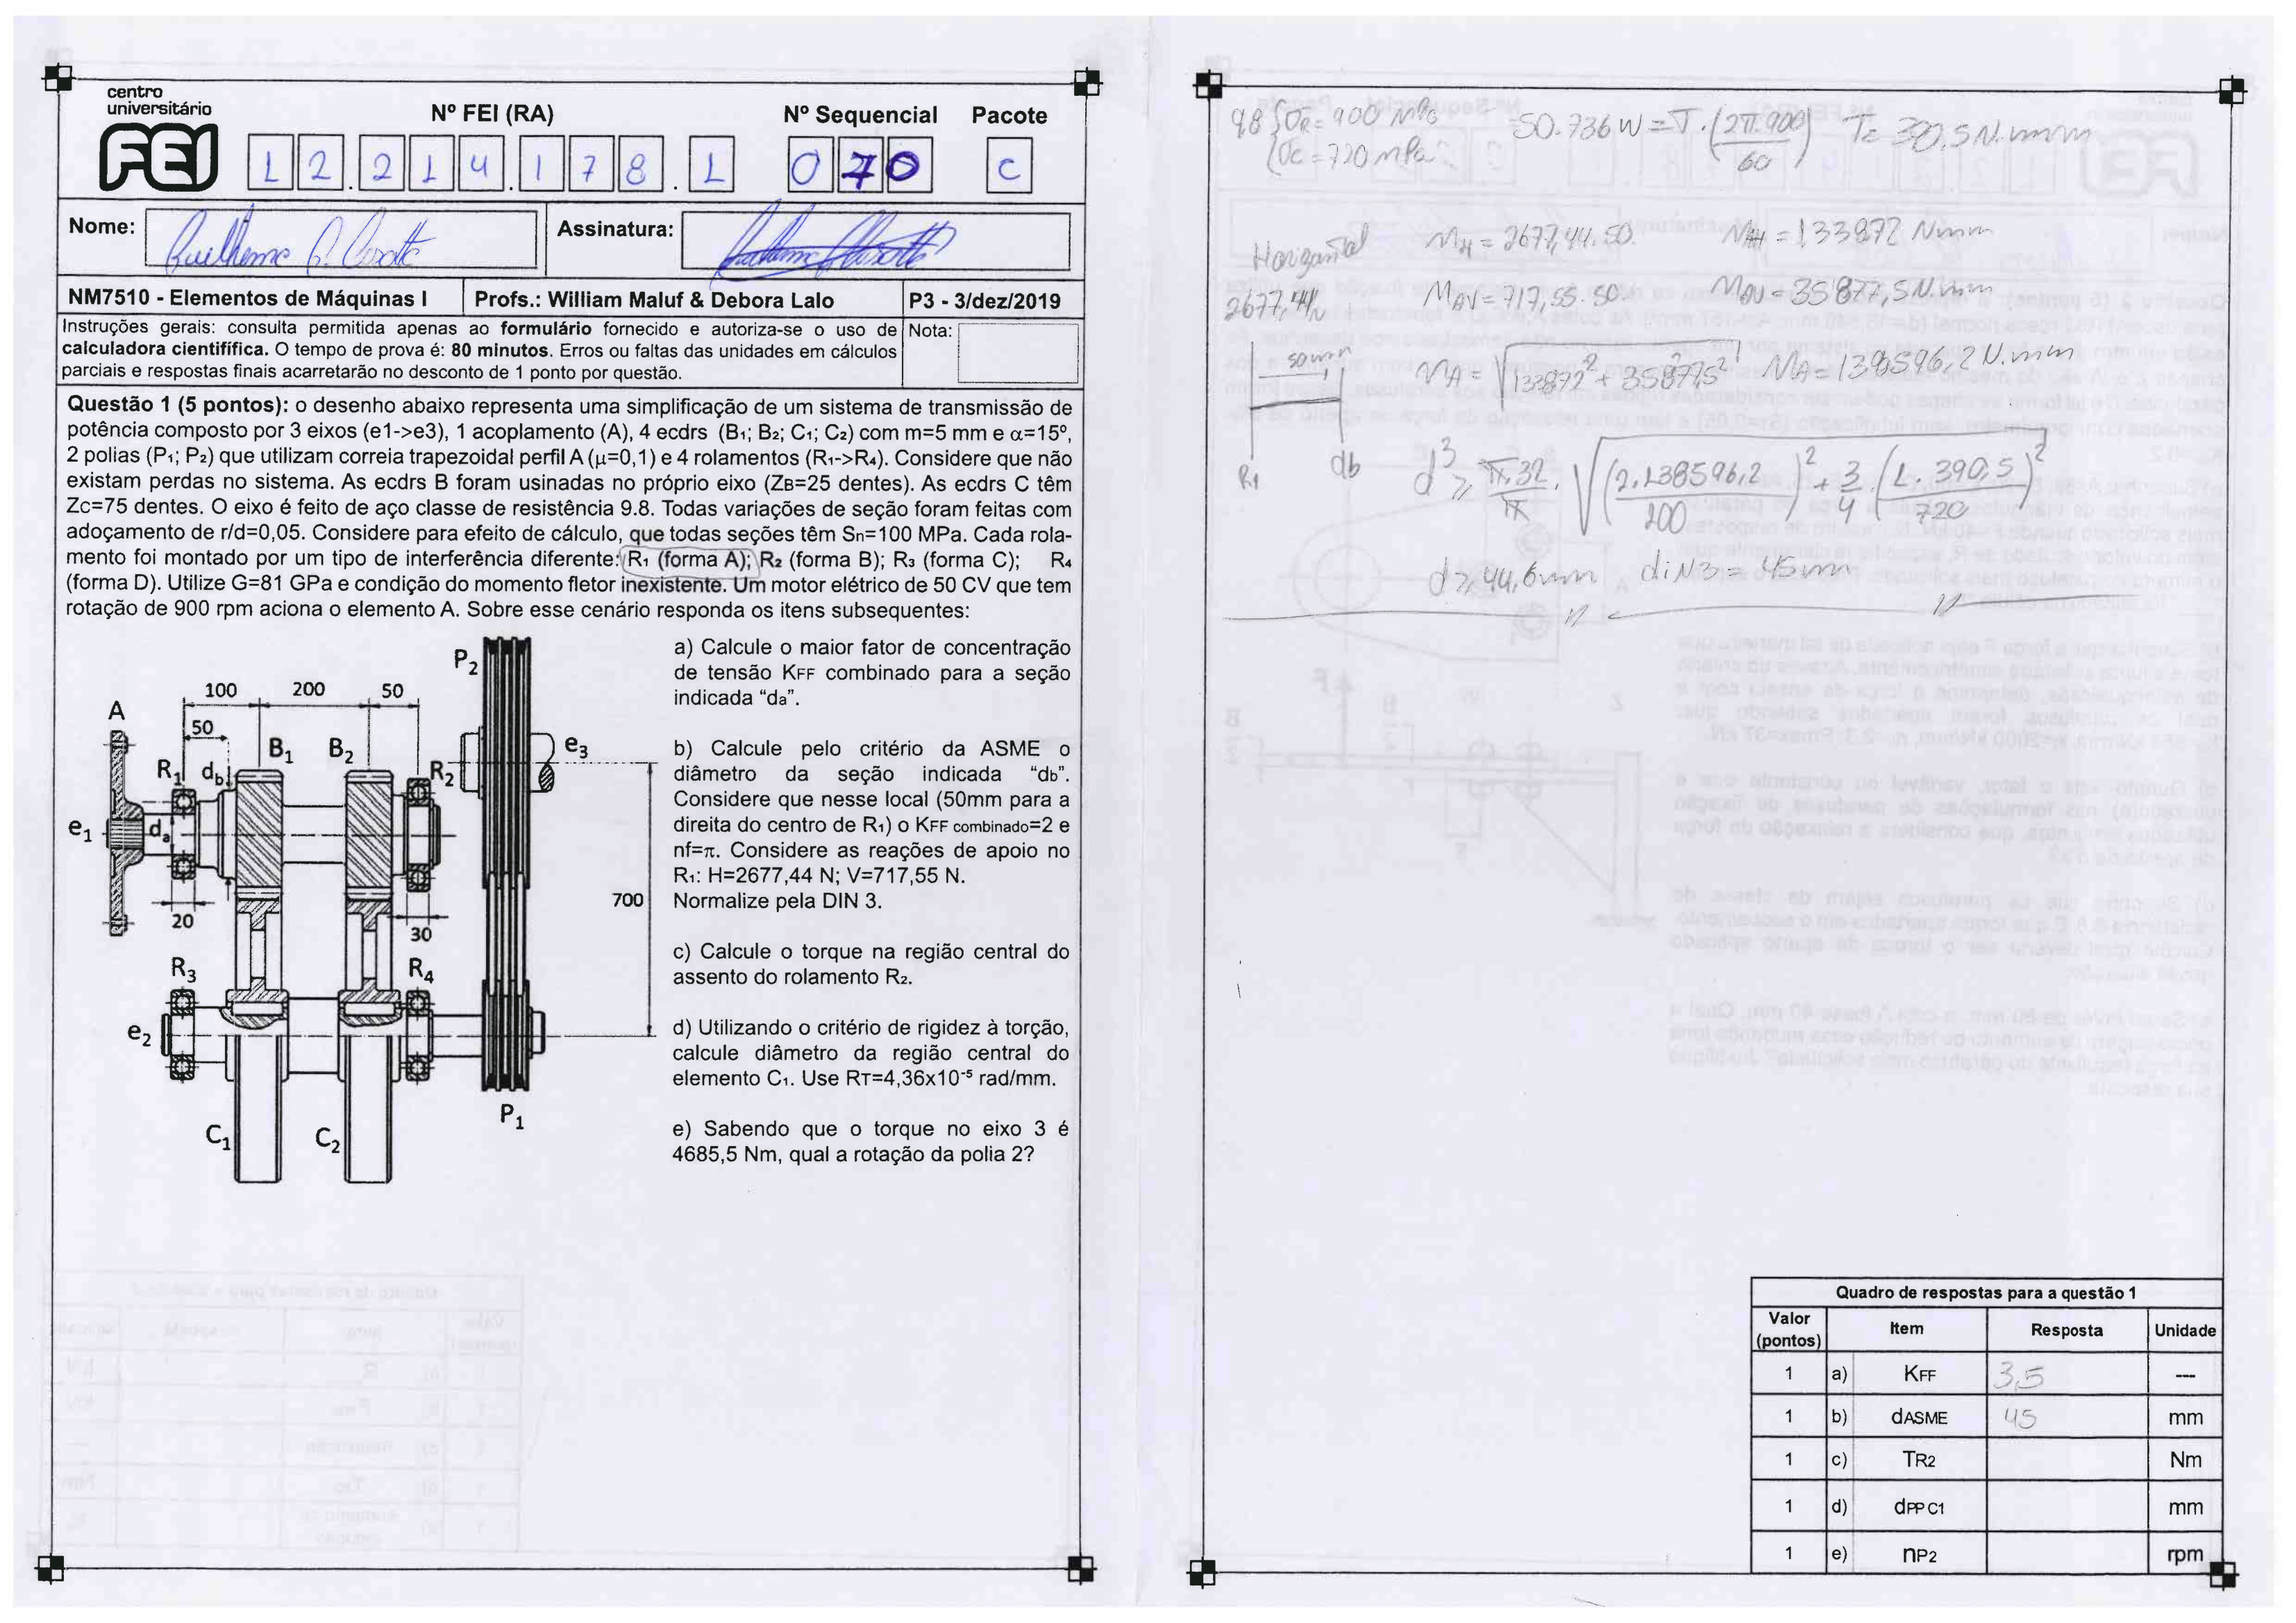 centro
universitário
FEI
Nº FEI (RA)
Nº Sequencial
Pacote
12.214.178.1
070
C
Nome:
Assinatura:
NM7510 - Elementos de Máquinas I
Profs.: William Maluf & Debora Lalo
P3 - 3/dez/2019
Instruções gerais: consulta permitida apenas ao formulário fornecido e autoriza-se o uso de
calculadora cientifífica. O tempo de prova é: 80 minutos. Erros ou faltas das unidades em cálculos
parciais e respostas finais acarretarão no desconto de 1 ponto por questão.
Nota:
Questão 1 (5 pontos): o desenho abaixo representa uma simplificação de um sistema de transmissão de
potência composto por 3 eixos (e1->e3), 1 acoplamento (A), 4 ecdrs (B1; B2; C1; C2) com m=5 mm e α=15º,
2 polias (P1; P2) que utilizam correia trapezoidal perfil A (μ=0,1) e 4 rolamentos (R1->R4). Considere que não
existam perdas no sistema. As ecdrs B foram usinadas no próprio eixo (ZB=25 dentes). As ecdrs C têm
Zc=75 dentes. O eixo é feito de aço classe de resistência 9.8. Todas variações de seção foram feitas com
adoçamento de r/d=0,05. Considere para efeito de cálculo, que todas seções têm Sn=100 MPa. Cada rola-
mento foi montado por um tipo de interferência diferente: R1 (forma A); R2 (forma B); R3 (forma C); R4
(forma D). Utilize G=81 GPa e condição do momento fletor inexistente. Um motor elétrico de 50 CV que tem
rotação de 900 rpm aciona o elemento A. Sobre esse cenário responda os itens subsequentes:
P2
100 200 50
A
50
B1 B2
e3
R1 db R2
e1 da
20
30
700
R3 R4
e2
P1
C1 C2
a) Calcule o maior fator de concentração
de tensão KFF combinado para a seção
indicada “da”.
b) Calcule pelo critério da ASME o
diâmetro da seção indicada “db”.
Considere que nesse local (50mm para a
direita do centro de R1) o KFF combinado=2 e
nf=π. Considere as reações de apoio no
R1: H=2677,44 N; V=717,55 N.
Normalize pela DIN 3.
c) Calcule o torque na região central do
assento do rolamento R2.
d) Utilizando o critério de rigidez à torção,
calcule diâmetro da região central do
elemento C1. Use RT=4,36x10⁻⁵ rad/mm.
e) Sabendo que o torque no eixo 3 é
4685,5 Nm, qual a rotação da polia 2?
9.8 { σR = 900 MPa
σc = 720 MPa
50.736 W = T. (2π.900 / 60) T= 390,5 N.mm
Horizontal
MH = 2677,44.50. MAH = 133872 Nmm
2677,44N
MAV = 717,55.50. MAV = 35877,5 Nmm
50mm
R1 db
MA = √133872² + 35877,5² MA = 138596,2 N.mm
d³ ≥ π.32 / π . √(2.138596,2 / 200)² + 3/4 . (1. 390,5 / 720)²
d ≥ 44,6mm diN3 = 45mm
Quadro de respostas para a questão 1
Valor (pontos) Item Resposta Unidade
1 a) KFF 3,5 ---
1 b) dASME 45 mm
1 c) TR2 Nm
1 d) dPP C1 mm
1 e) nP2 rpm